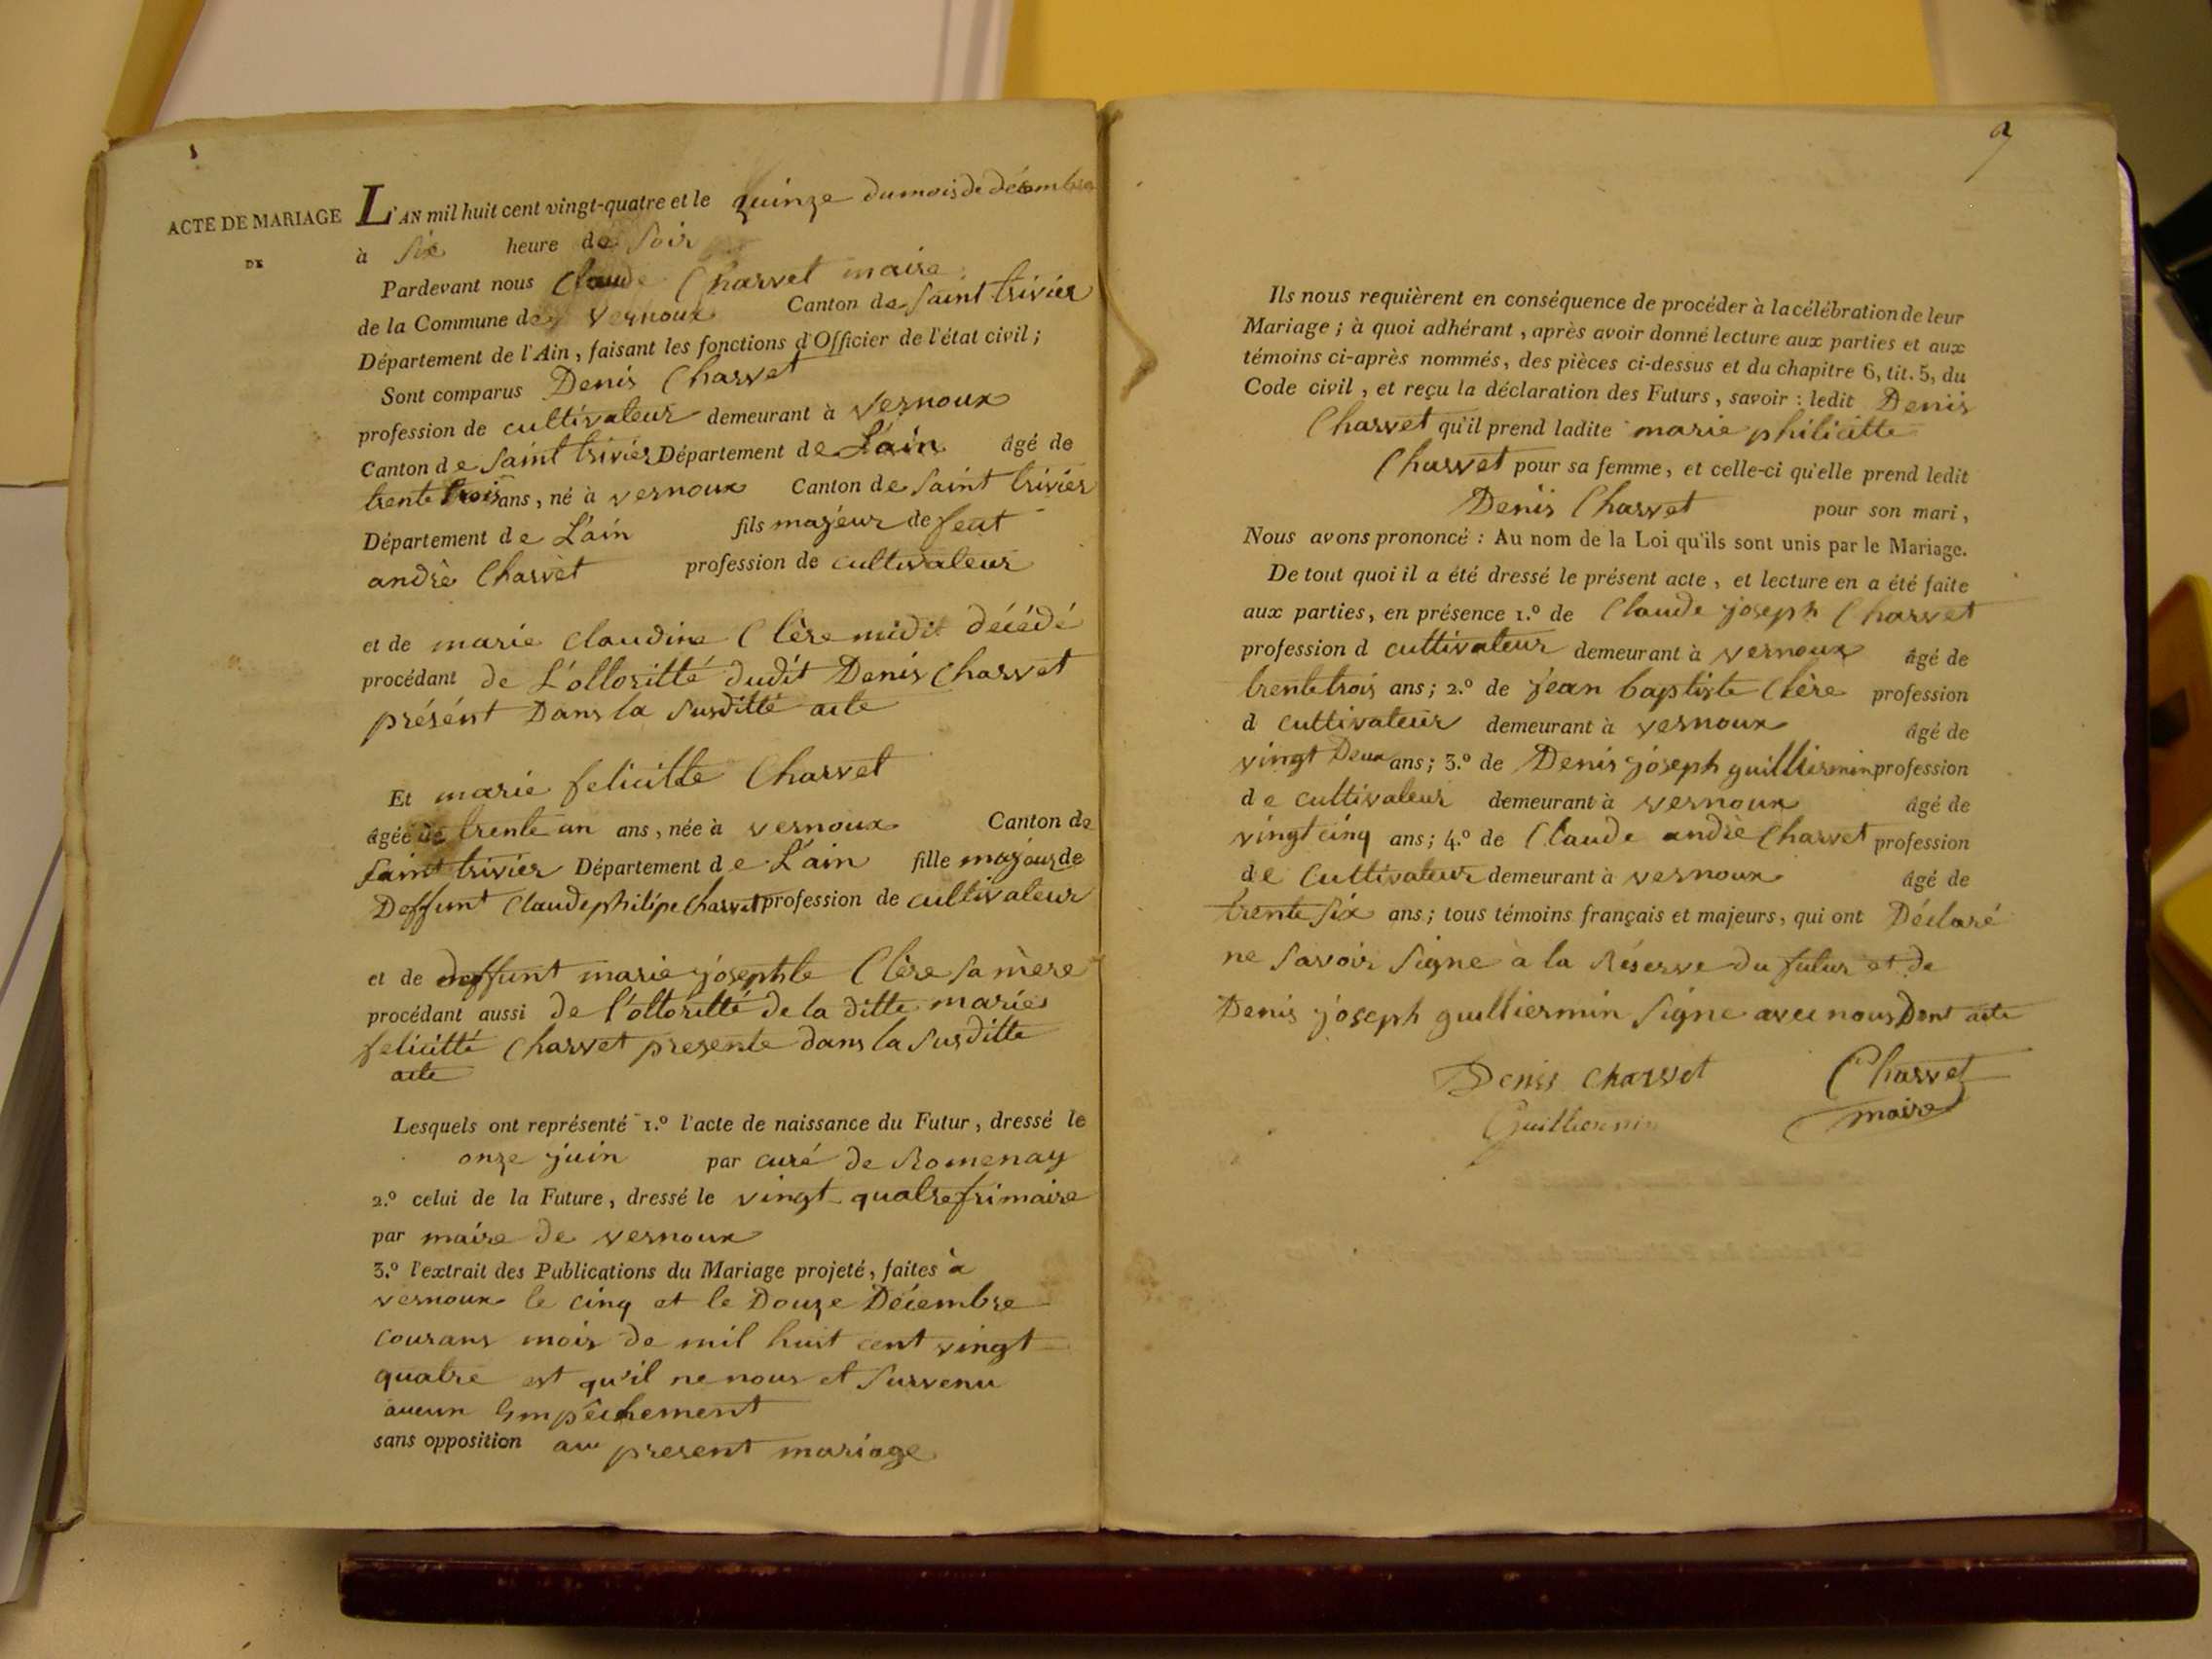 ACTE DE MARIAGE
DE
L'AN mil huit cent vingt-quatre et le quinze du mois de décembre
à Six heure de Soir
Pardevant nous Claude Charvet maire
de la Commune de Vernoux Canton de Saint trivier
Département de l'Ain, faisant les fonctions d'Officier de l'état civil;
Sont comparus Denis Charvet
profession de cultivateur demeurant à Vernoux
Canton de Saint trivier Département de L'ain âgé de
trente trois ans, né à vernoux Canton de Saint trivier
Département de L'ain fils majeur de feut
andrè Charvèt profession de cultivateur
et de marie Claudine Clère décédé
procédant de L'ottoritté dudit Denis Charvet
présént Dans la Susditté acte
Et marie felicitte Charvet
âgée de trente un ans, née à vernoux Canton de
Saint trivier Département de L'ain fille majour de
Deffunt Claude philipe Charvet profession de cultivateur
et de deffunt marie josephte Clère Sa mère
procédant aussi de l'ottoritté de la ditte marie
felicitté Charvet presente dans la Susditte
acte
Lesquels ont représenté 1.º l'acte de naissance du Futur, dressé le
onze juin par curé de Romenay
2.º celui de la Future, dressé le vingt quatre frimaire
par maire de vernoux
3.º l'extrait des Publications du Mariage projeté, faites à
vernoux le cinq et le Douze Décembre
courans mois de mil huit cent vingt
quatre est qu'il ne nous et Survenu
aucun Empêchement
sans opposition au present mariage
9
Ils nous requièrent en conséquence de procéder à la célébration de leur
Mariage; à quoi adhérant, après avoir donné lecture aux parties et aux
témoins ci-après nommés, des pièces ci-dessus et du chapitre 6, tit. 5, du
Code civil, et reçu la déclaration des Futurs, savoir: ledit Denis
Charvet qu'il prend ladite marie philicitte
Charvet pour sa femme, et celle-ci qu'elle prend ledit
Denis Charvet pour son mari,
Nous avons prononcé: Au nom de la Loi qu'ils sont unis par le Mariage.
De tout quoi il a été dressé le présent acte, et lecture en a été faite
aux parties, en présence 1.º de Claude joseph Charvet
profession d cultivateur demeurant à vernoux âgé de
trente trois ans; 2.º de jean baptiste Clère profession
d cultivateur demeurant à vernoux âgé de
vingt Deux ans; 3.º de Denis joseph guilliermin profession
de cultivateur demeurant à vernoux âgé de
vingt cinq ans; 4.º de Claude andrè Charvet profession
de Cultivateur demeurant à vernoux âgé de
trente Six ans; tous témoins français et majeurs, qui ont Déclaré
ne Savoir Signe à la Réserve du futur et de
Denis joseph guilliermin Signe avec nous Dont acte
Denis Charvet Charvet
Guilliermin maire